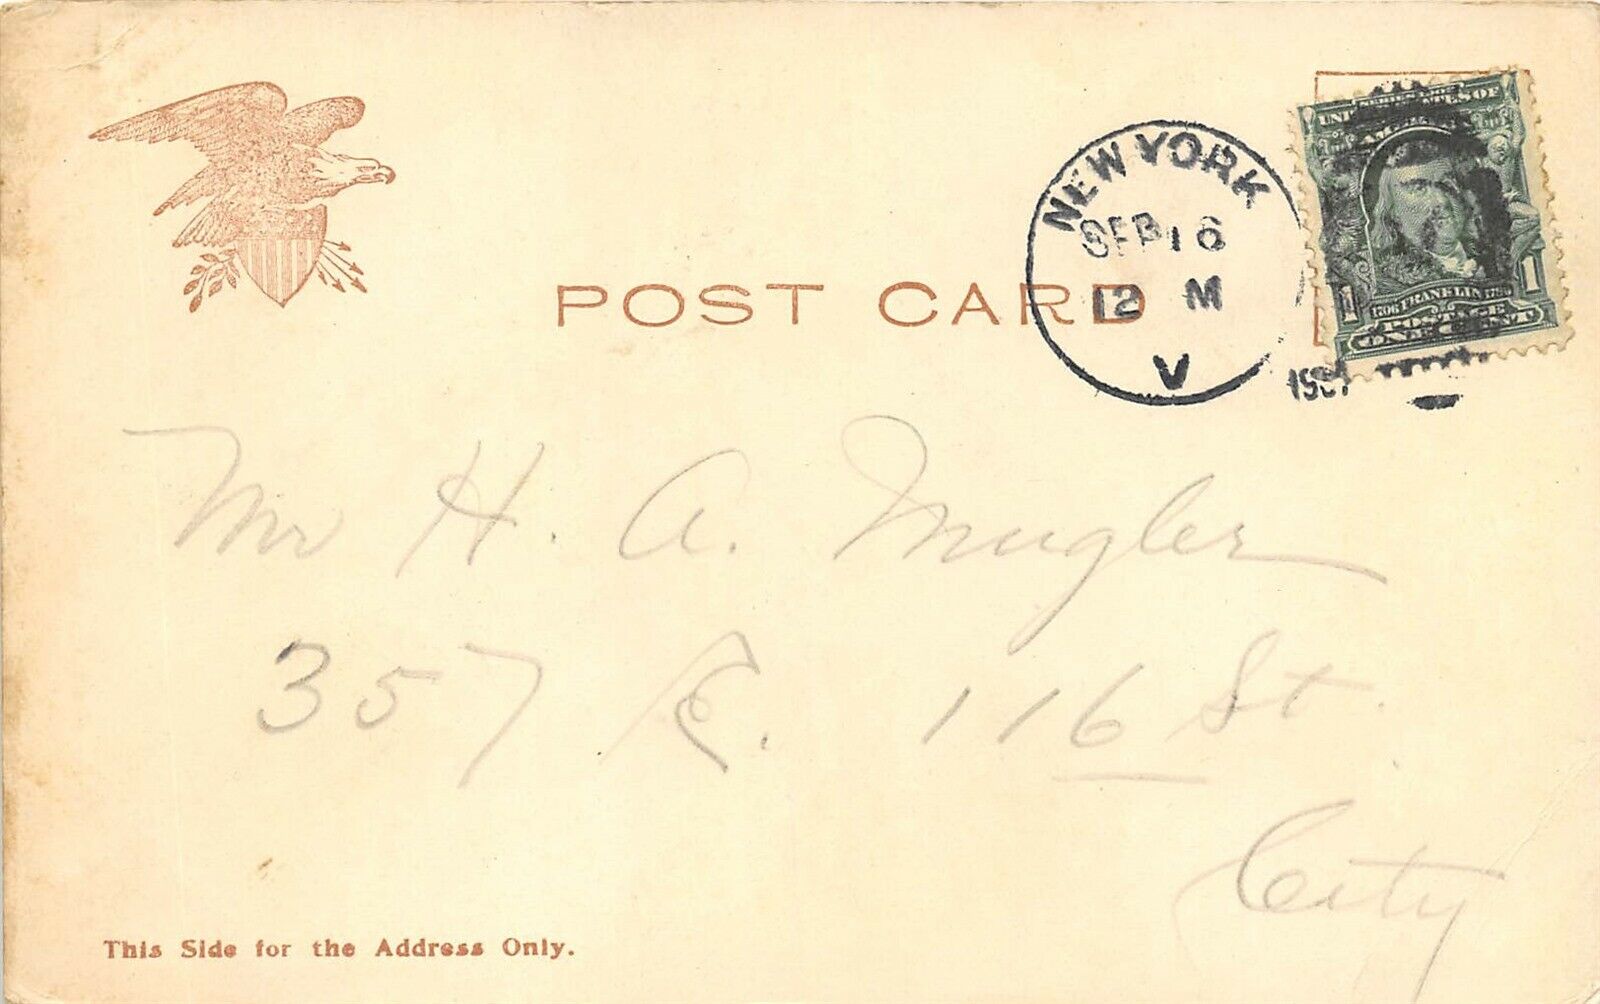 NEW YORK
SEP 16
12 M
V
POST CARD
UNITED STATES OF
AMERICA
1706 FRANKLIN 1790
1 1
POSTAGE
ONE CENT
Mr H. A. Mugler
357 E. 116 St.
City
This Side for the Address Only.